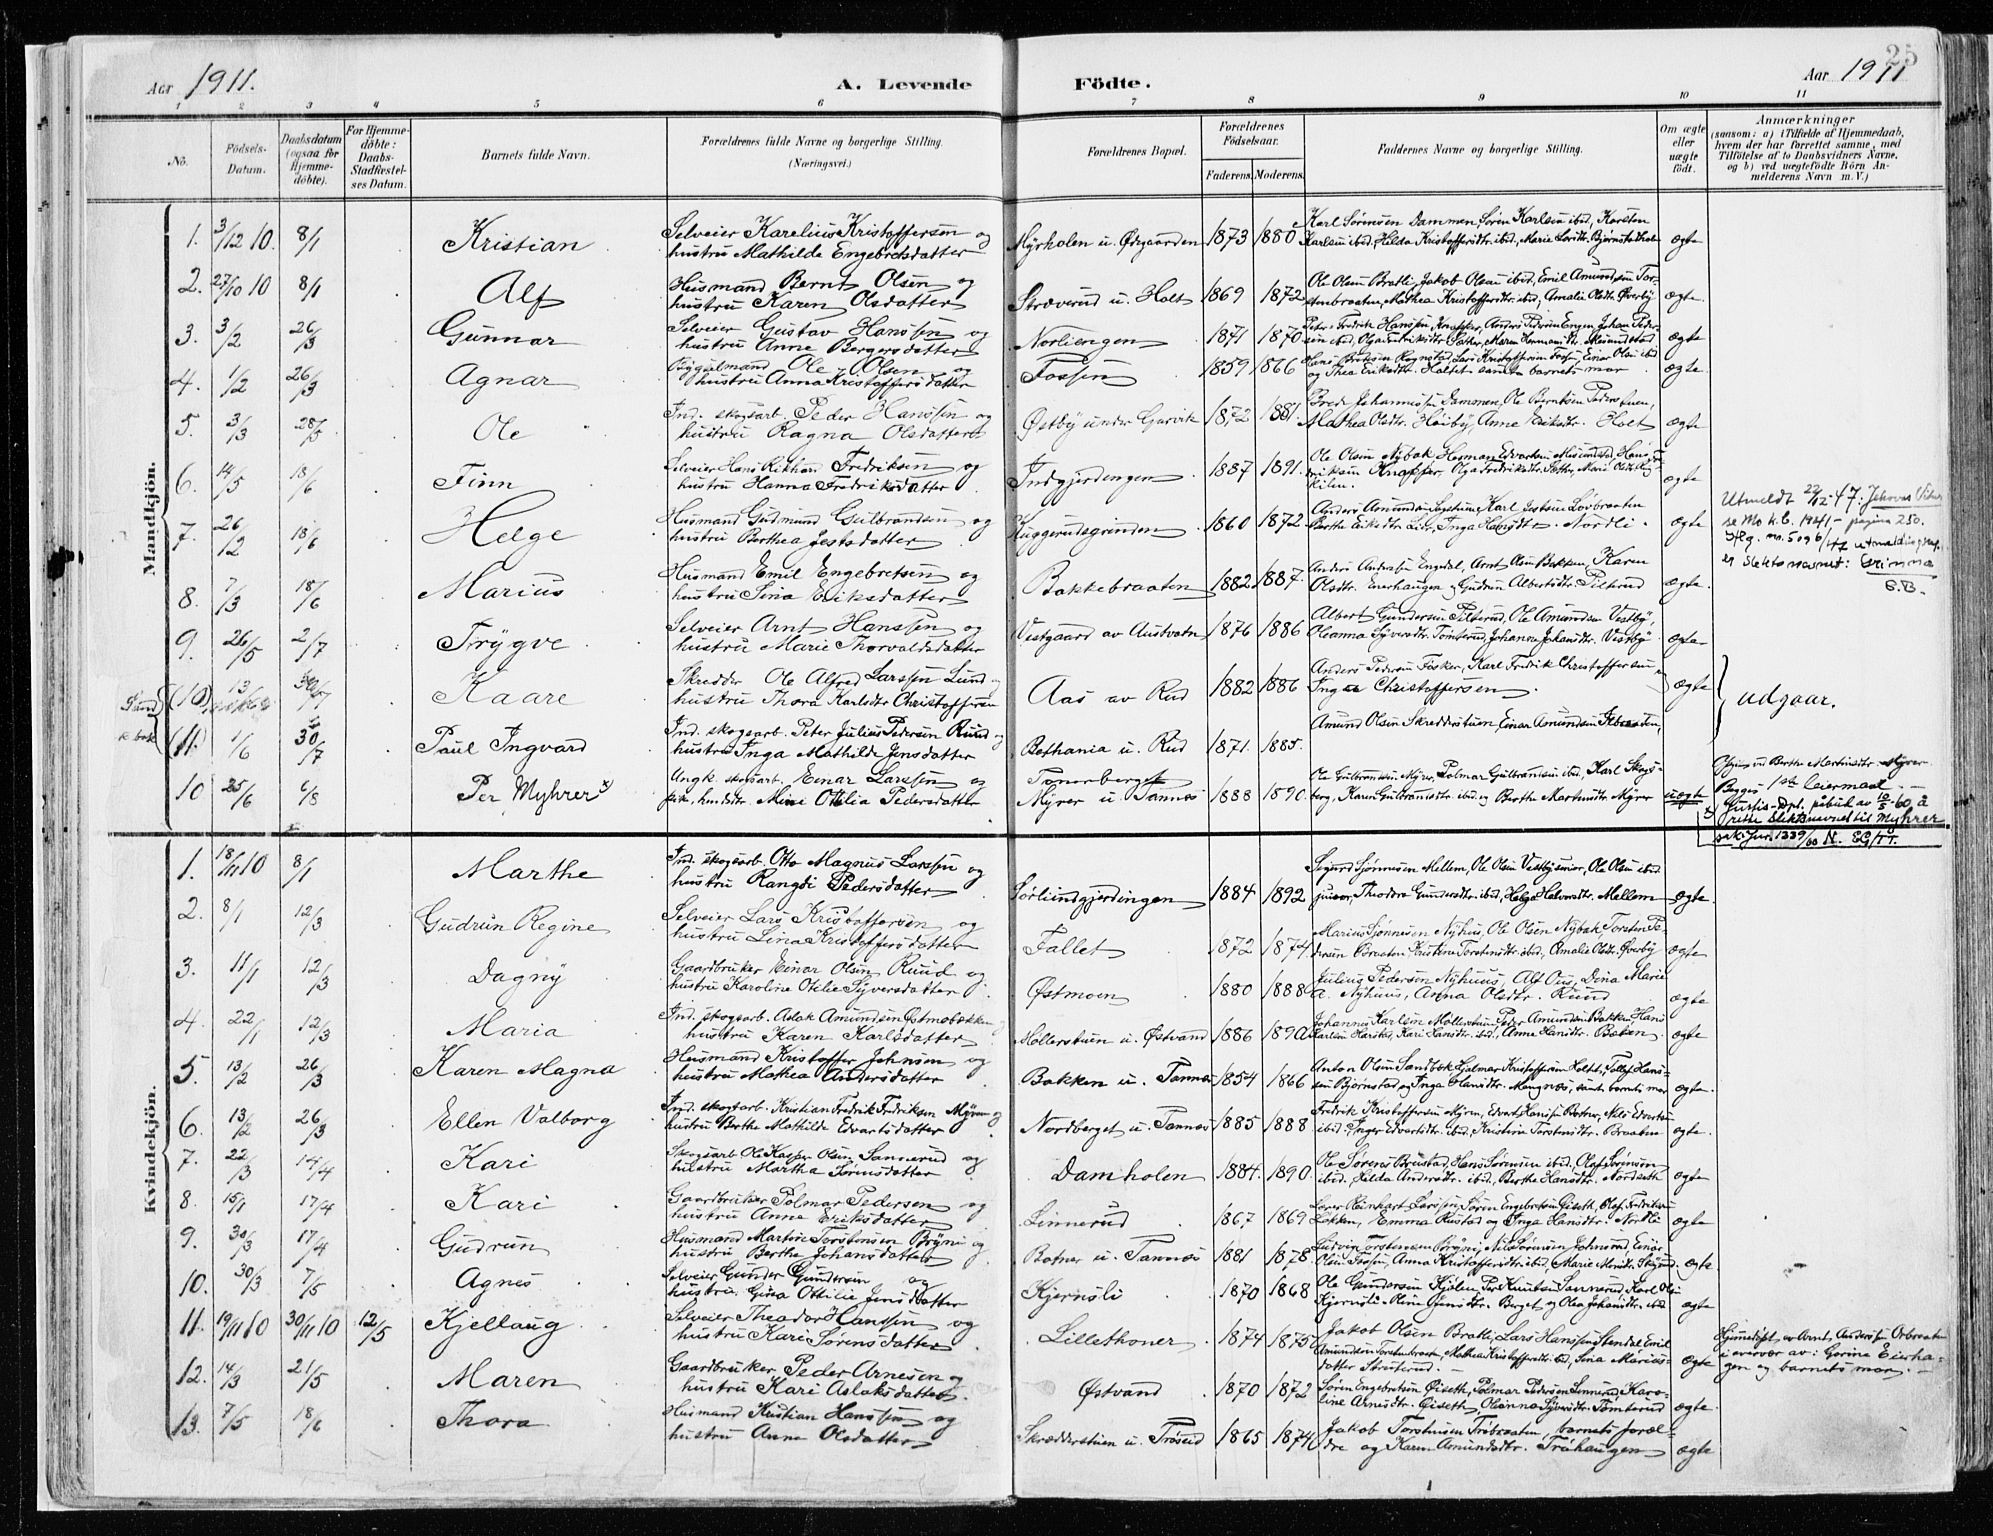 25
Aar 1911.
A. Levende
Födte.
Aar 1911
1 2 3 4 5 6 7 8 9 10 11
No.
Födsels-Datum.
Daabsdatum (ogsaa for Hjemmedöbte).
For Hjemmedöbte: Daabs-Stadfæstelses Datum.
Barnets fulde Navn.
Forældrenes fulde Navne og borgerlige Stilling. (Næringsvei.)
Forældrenes Bopæl.
Forældrenes Födselsaar.
Faderens. Moderens.
Faddernes Navne og borgerlige Stilling.
Om ægte eller uægte födt.
Anmærkninger (saasom: a) i Tilfælde af Hjemmedaab, hvem der har forrettet samme, med Tilföielse af to Daabsvidners Navne, og b) ved uægtefödte Börn Anmelderens Navn m. V.)
Mandkjön.
1. 3/12 10. 8/1 Kristian Selveier Karelius Kristoffersen og hustru Mathilde Engebretsdatter Myrholen u. Ødegaarden 1873 1880 Karl Sørensen Dammen, Søren Karlsen ibid, Karsten Karlsen ibid, Hilda Kristoffersdtr. ibid, Marie ægte
2. 27/10 10 8/1 Alf Husmand Bernt Olsen og hustru Karen Olsdatter Stræverud u. Holt 1869 1872 Ole Olsen Bratli, Jakob Olsen ibid, Emil Amundsen Torstenbraaten, Mathea Kristoffersdtr. ibid, Amalie Olsdtr. Øverby ægte
3. 3/2 26/3 Gunnar Selveier Gustav Hanssen og hustru Anne Bergersdatter Norliengen 1871 1870 Peter Fredrik Hanssen Knapper, Anders Pedersen Engen, Johan Pedersen ibid, ægte
4. 1/2 26/3 Agnar Bygselmand Ole Olsen og hustru Anna Kristoffersdatter Fossen 1859 1866 Lars Kristoffersen Fossen, Einar Olsen ibid og Thea Eriksdtr. samt barnets mor ægte
5. 3/3 28/5 Ole Ind. skogsarb. Peder Hanssen og hustru Ragna Olsdatter Østby under Garvik 1872 1881. Brede Johannessen Dammen, Ole Berntsen Pederstuen, Mathea Olsdtr. Høiby, Anne Eriksdtr. Holt ægte
6. 14/5 18/6 Finn Selveier Hans Rikhard Fredriksen og hustru Hanna Fredriksdatter Indgjerdengen 1887 1891. Ole Olsen Nybak, Herman Edvartsen ægte
7. 26/2 18/6 Helge Husmand Gudmund Gulbrandsen og hustru Berthea Jestsdatter Kuggerudsgrinden 1860 1872. Anders Amundsen Karl Jestsen Løvbraaten Berthe Eriksdtr. Lier, Inga Hansdtr. Nordli. ægte
Utmeldt 22/12-47: Jehovas Vitner
se Mo k.b. 1941 - pagina 250.
utmelding
og Slektsnavnet: Grimmo
S.B.
8. 7/3 18/6 Marius Husmand Emil Engebretsen og hustru Sina Eriksdatter Bakkebraaten 1882 1887. Anders Anderssen Engedal, Arnt Olsen Bakken, Karen Olsdtr. Enerhaugen, Gudrun Albertsdtr. Pilterud ægte
9. 26/5 2/7 Trygve Selveier Arnt Hanssen og hustru Marie Thorvaldsdatter Vestgaard av Austvatn 1876 1886 Albert Gundersen Pilterud, Ole Amundsen Vestby, Oleanna Syversdtr. Tomterud, Johanne Johansdtr. Vestby ægte
(10) 30/7 Kaare Skredder Ole Alfred Larssen Lund og hustru Thora Karlsdtr Christoffersen Aas av Rud 1882 1886 Anders Pedersen Fosker, Karl Fredrik Christoffersen Inga Christoffersen. ægte
(11) 1/6 30/7 Paul Ingvard Ind. skogsarb. Peter Julius Pedersen Ruud og hustru Inga Mathilde Jensdatter Bethania u. Rud 1871. 1885. Amund Olsen Skredderstuen, Einar Amundsen
udgaar.
10 25/6 6/8 Per Myhrer x) Ungk. skogsarb. Einar Larssen og pike, husdtr. Mine Otilia Pedersdatter Tonerberget Myrer u. Tannes 1888 1890. Ole Gulbrandsen Myrer, Polmar Gulbrandsen ibid, Karl Skogsberg, Karen Gulbrandsdtr. ibid og Berthe Martinsdtr. Myrer uægte Opgivet Berthe Martinsdtr. Myrer. Begges 1ste leiermaal.
x) Justis-Dpt. påbud av 10/5-60, å rette slektsnavnet til Myhrer
sak. jnr. 1339/60 N. EG/TT.
Kvindekjön.
1. 18/11 10 8/1 Marthe Ind. skogsarb. Otto Magnus Larssen og hustru Rangdi Pedersdatter Sørlundgjerdingen 1884 1892 Sigurd Sjønnesen Mellem, Ole Olsen Vestby senior, Ole Olsen ibid junior, Theodora Gundersdtr. ibid, Helga Halvorsdtr. Mellem ægte.
2. 8/1 12/3 Gudrun Regine Selveier Lars Kristoffersen og hustru Lina Kristoffersdatter Fallet 1872 1874. Marius Sjønnesen Nyhus, Ole Olsen Nybak, Torsten Pedersen Braaten, Kristine Torstensdtr. ibid, Amalie Olsdtr. Øverby ægte
3. 11/1 12/3 Dagny Gaardbruker Einar Olsen Ruud og hustru Karoline Otelie Syversdatter Østmoen 1880 1888 Julius Pedersen Nyhuus, Alf Ous, Dina Marie A. Nyhuus, Anna Olsdtr. Ruud ægte
4. 22/1 12/3 Maria Ind. skogsarb. Aslak Amundsen Østmobakken og hustru Karen Karlsdatter Møllerstuen u. Østvand 1886 1890. Johannes Karlsen Møllerstuen, Peder Amundsen Bakken, Hans Karlsen Kari Hansdtr. ibid, Anne Hansdtr. Bakken. ægte
5. 13/2 26/3 Karen Magna Husmand Kristoffer Johnsen og hustru Mathea Andersdatter Bakken u. Tannes 1854 1866 Anton Olsen Sandbek, Hjalmar Kristoffersen Holtet, Tollef Hanssen Bjørnstad og Inga Hansdtr. Mangnæs, samt barnets mor ægte.
6. 13/2 26/3 Ellen Valborg Ind. skogsarb. Kristian Fredrik Fredriksen Myren og hustru Berthe Mathilde Edvartsdatter Nordberget u. Tannes 1885 1888 Fredrik Kristoffersen Myren, Edvart Hanssen Botner, Nils Edvartsen ibid, Inger Edvartsdtr. ibid, Kristine Torstensdtr. Braaten ægte.
7. 22/3 14/4 Kari Skogsarb. Ole Kasper Olsen Sannerud og hustru Martha Sørensdatter Damholen 1884. 1890. Ole Sørensen Brustad, Hans Sørensen ibid, Olaf Sørensen ibid, Hilda Andersdtr. ibid, Berthe Hansdtr. Nordseth ægte
8. 15/1 17/4 Kari Gaardbruker Polmar Pedersen og hustru Anne Eriksdatter Linnerud 1867 1869 Lærer Reinhart Larssen, Søren Engebretsen Øiseth, Olaf Fredriksen Løkken, Emma Rustad og Inga Hansdtr. Nordli ægte
9. 30/3 17/4 Gudrun Husmand Martin Torstensen Bryni og hustru Berthe Johansdatter Botner u. Tannes 1881 1878. Ludvig Torstensen Bryni, Nils Sørensen Johnsrud, Einar Olsen Fossen, Anna Kristoffersdtr. ibid, Marie ægte
10. 30/3 7/5 Agnes Selveier Gunder Gundersen og hustru Gina Ottilie Jensdatter Kjernsli 1870 1868 Ole Gundersen Kjølen, Per Knutsen Sannerud, Karl Olsen Kjernsli, Oline Berget og Olea Johansdtr. ibid ægte
11. 19/11 10 30/11 10 12/5 Kjellaug Selveier Theodor Hanssen og hustru Kari Sørensdatter Lillethoner 1874 1875 Jakob Olsen Bratli, Lars Hanssen Stendal, Emil Amundsen Torstenbraaten, Mathea Kristoffersdtr. ibid, Sina Mariusdatter Stræterud. ægte Hjemmedøpt av Arnt Anderssen Orbraaten i overvær av: Gorine Eierhagen og barnets mor.
12. 14/3 21/5 Maren Gaardbruker Peder Arnesen og hustru Kari Aslaksdatter. Østvand 1870 1872 Søren Engebretsen Øiseth, Polmar Pedersen Linnerud, Karoline Arnesdtr. Øiseth, Oleanna Syversdtr. Tomterud ægte.
13. 7/5 18/6 Thora Husmand Kristian Hanssen og hustru Anne Olsdatter Skrædderstuen u. Trøseid 1865 1874 Jakob Torstensen Trøbraaten, barnets forældre og Karen Amundsdtr. Trøhaugen ægte